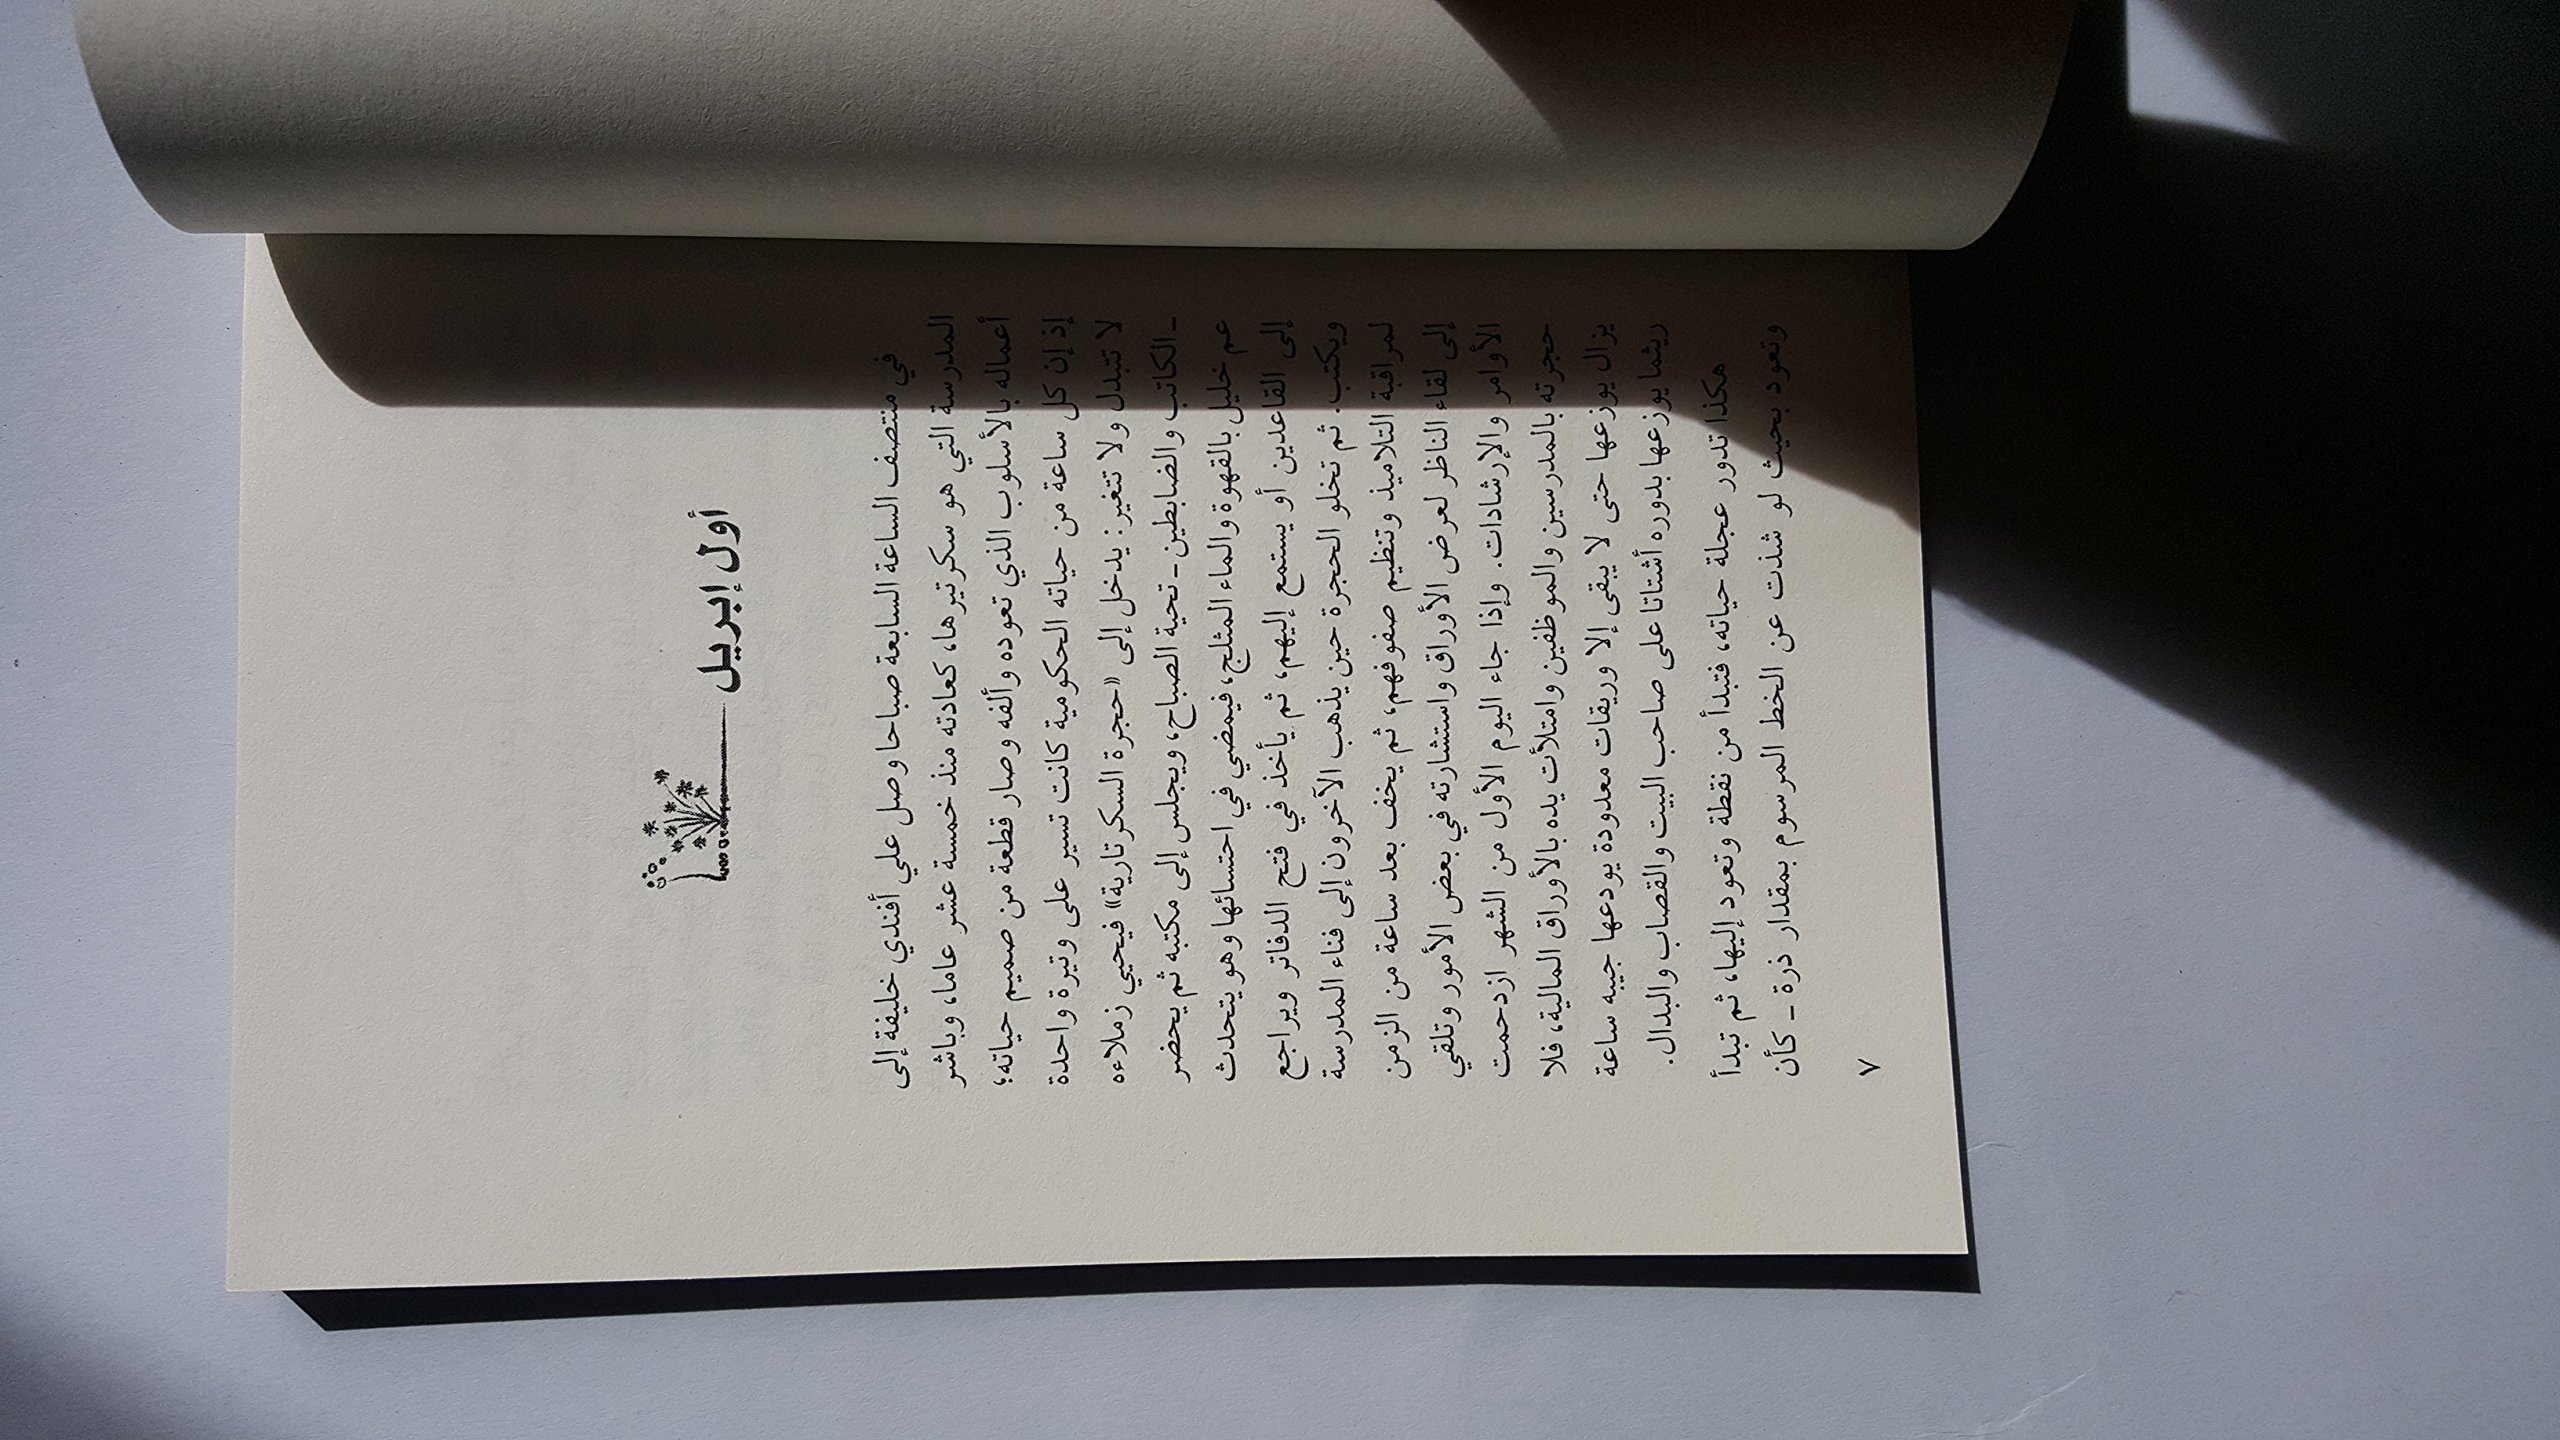 أول إبريل
في منتصف الساعة السابعة صباحا وصل علي أفندي خليفة إلى
المدرسة التي هو سكرتيرها، كعادته منذ خمسة عشر عاما، وباشر
أعماله بالأسلوب الذي تعوده وألفه وصار قطعة من صميم حياته؛
إذ إن كل ساعة من حياته الحكومية كانت تسير على وتيرة واحدة
لا تتبدل ولا تتغير: يدخل إلى «حجرة السكرتارية» فيحيي زملاءه
ـ الكاتب والضابطين ـ تحية الصباح، ويجلس إلى مكتبه ثم يحضر
عم خليل بالقهوة والماء المثلج، فيمضي في احتسائها وهو يتحدث
إلى القاعدين أو يستمع إليهم، ثم يأخذ في فتح الدفاتر ويراجع
ويكتب. ثم تخلو الحجرة حين يذهب الآخرون إلى فناء المدرسة
لمراقبة التلاميذ وتنظيم صفوفهم، ثم يخف بعد ساعة من الزمن
إلى لقاء الناظر لعرض الأوراق واستشارته في بعض الأمور وتلقي
الأوامر والإرشادات. وإذا جاء اليوم الأول من الشهر ازدحمت
حجرته بالمدرسين والموظفين وامتلأت يده بالأوراق المالية، فلا
يزال يوزعها حتى لا يبقى إلا وريقات معدودة يودعها جيبه ساعة
ريثما يوزعها بدوره أشتاتا على صاحب البيت والقصاب والبدال.
هكذا تدور عجلة حياته، فتبدأ من نقطة وتعود إليها، ثم تبدأ
وتعود بحيث لو شذت عن الخط المرسوم بمقدار ذرة ـ كأن
٧